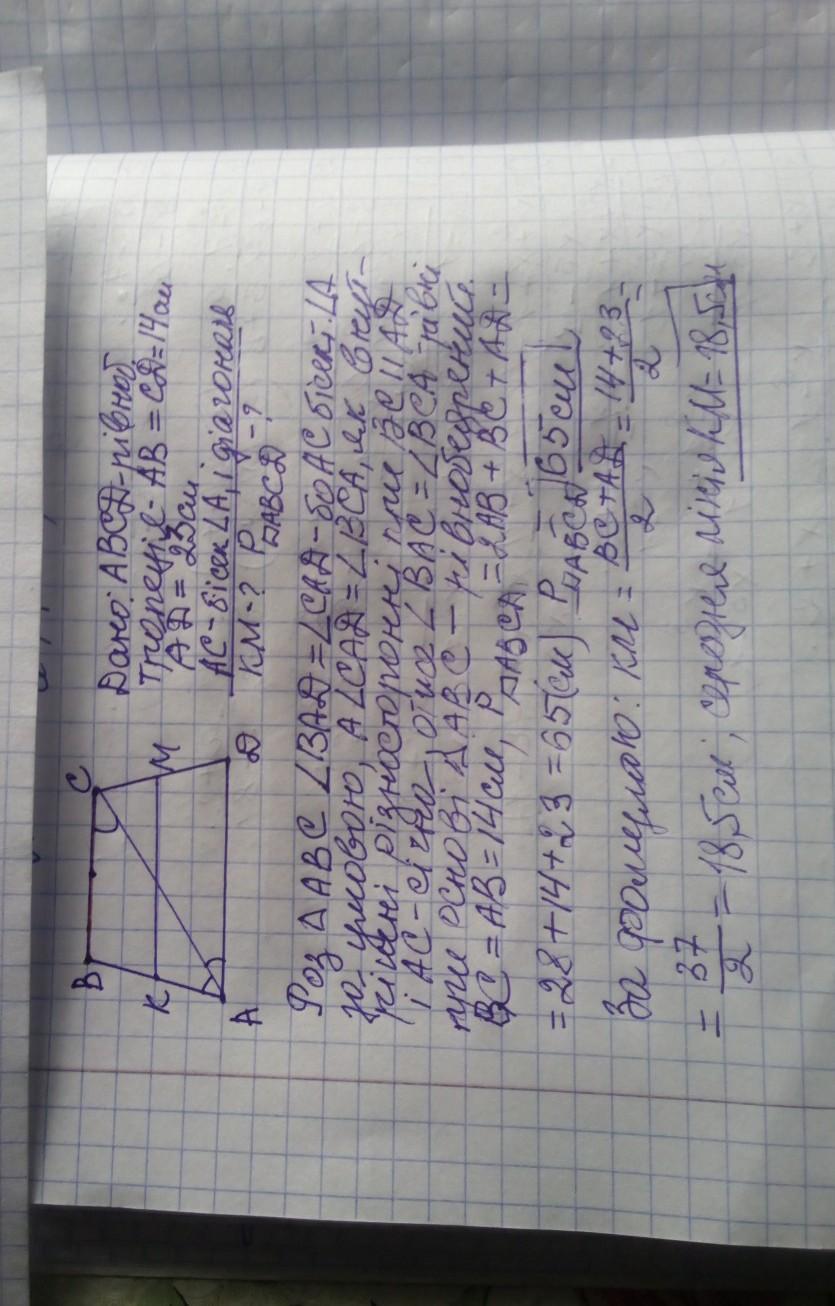 B
C
K
M
A
D
Дано: ABCD-рівноб
трапеція- AB = CD=14см
AD = 23см
AC-бісек ∠A, і діагональ
KM-? P▱ABCD-?
Роз △ABC ∠BAD=∠CAD-бо AC бісект.∠A
за умовою, А ∠CAD=∠BCA, як внут-
рішні різносторонні при BC || AD
і AC-січна, отже ∠BAC=∠BCA-рівні
при основі △ABC-рівнобедрений.
BC=AB=14см, P▱ABCD=2AB+BC+AD=
=28+14+23=65(см) P▱ABCD=65см
За формулою: KM = BC+AD/2 = 14+23/2 =
= 37/2 = 18,5см; середня лінія KM=18,5см